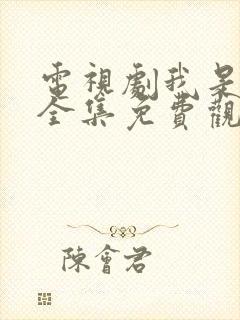 電視劇我
全集免費觀
陳會君